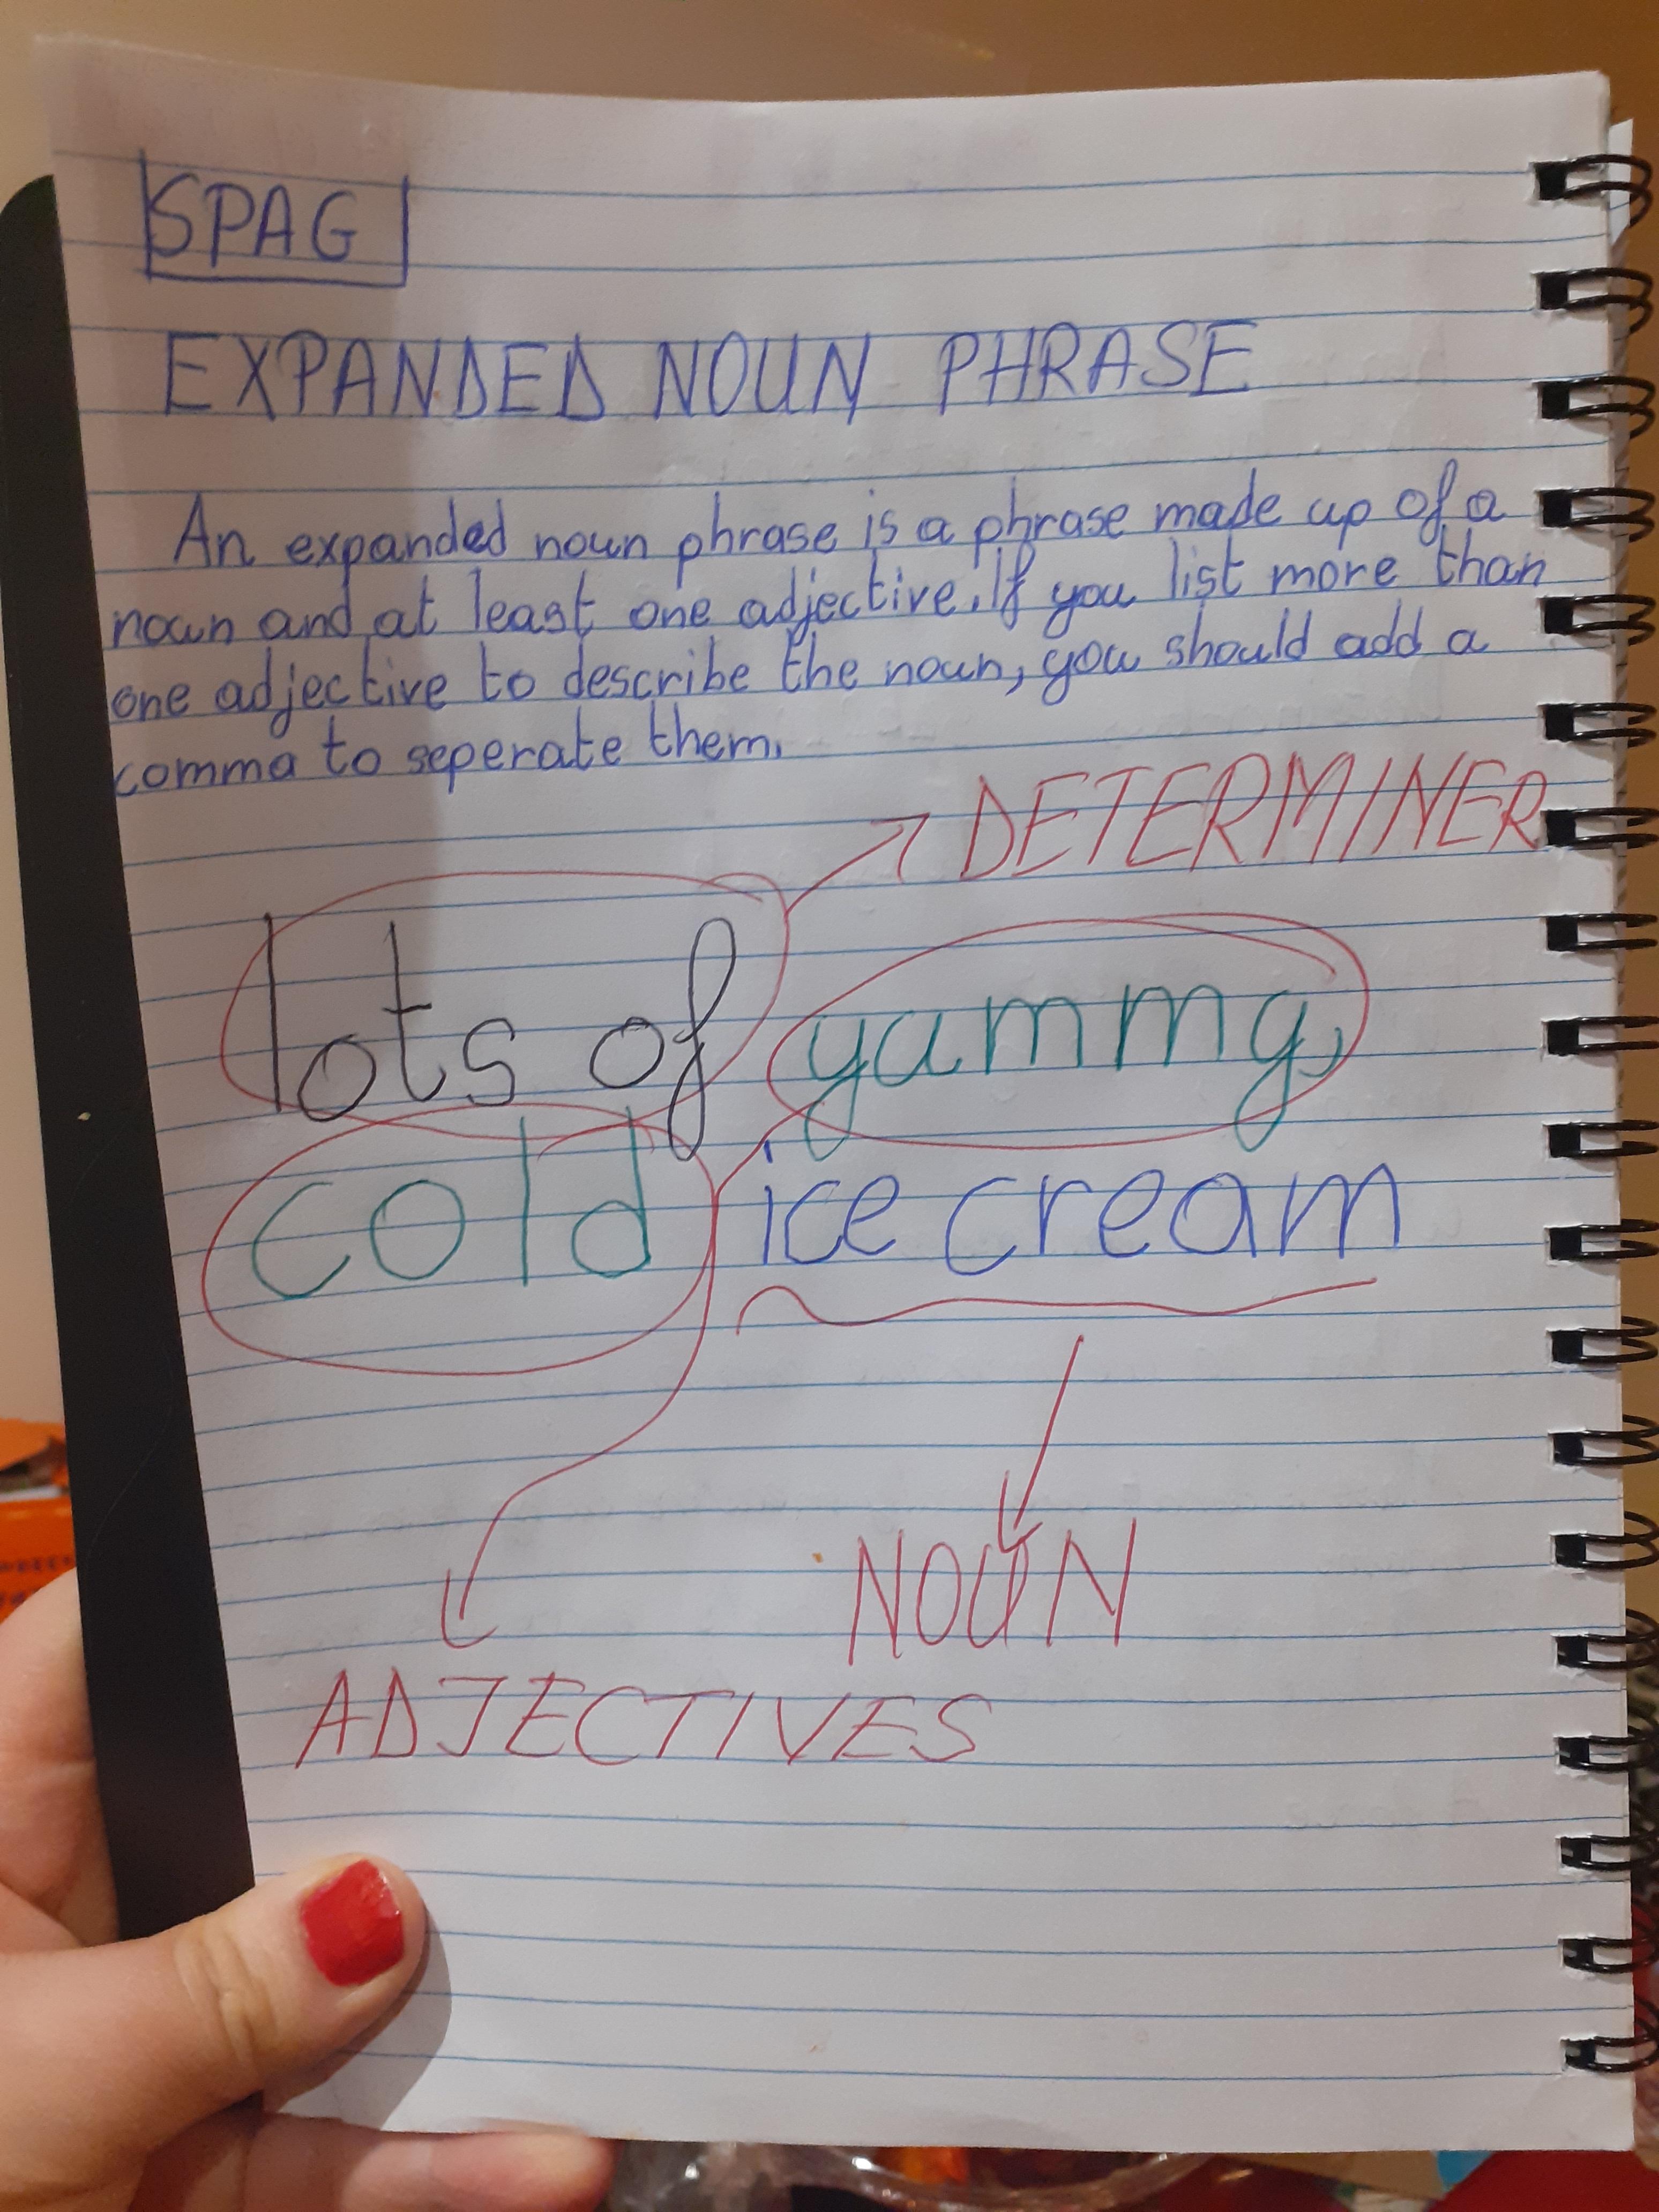 SPAG
EXPANDED NOUN PHRASE
An expanded noun phrase is a phrase made up of a
noun and at least one adjective. If you list more than
one adjective to describe the noun, you should add a
comma to seperate them.
DETERMINER
lots of yummy,
cold ice cream
NOUN
ADJECTIVES